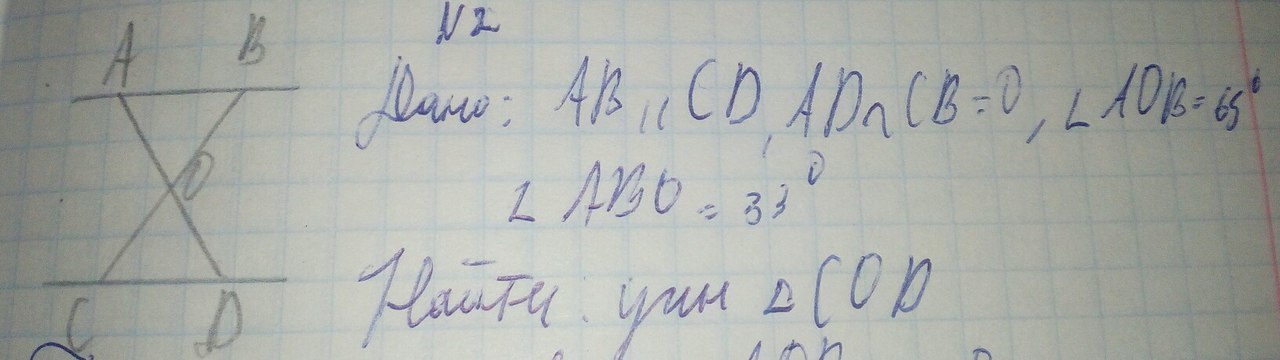 N2
A B
Дано: AB || CD, AD∩CB=O, ∠AOB=65°
∠ABO = 33°
O
Найти: угли △COD
C D